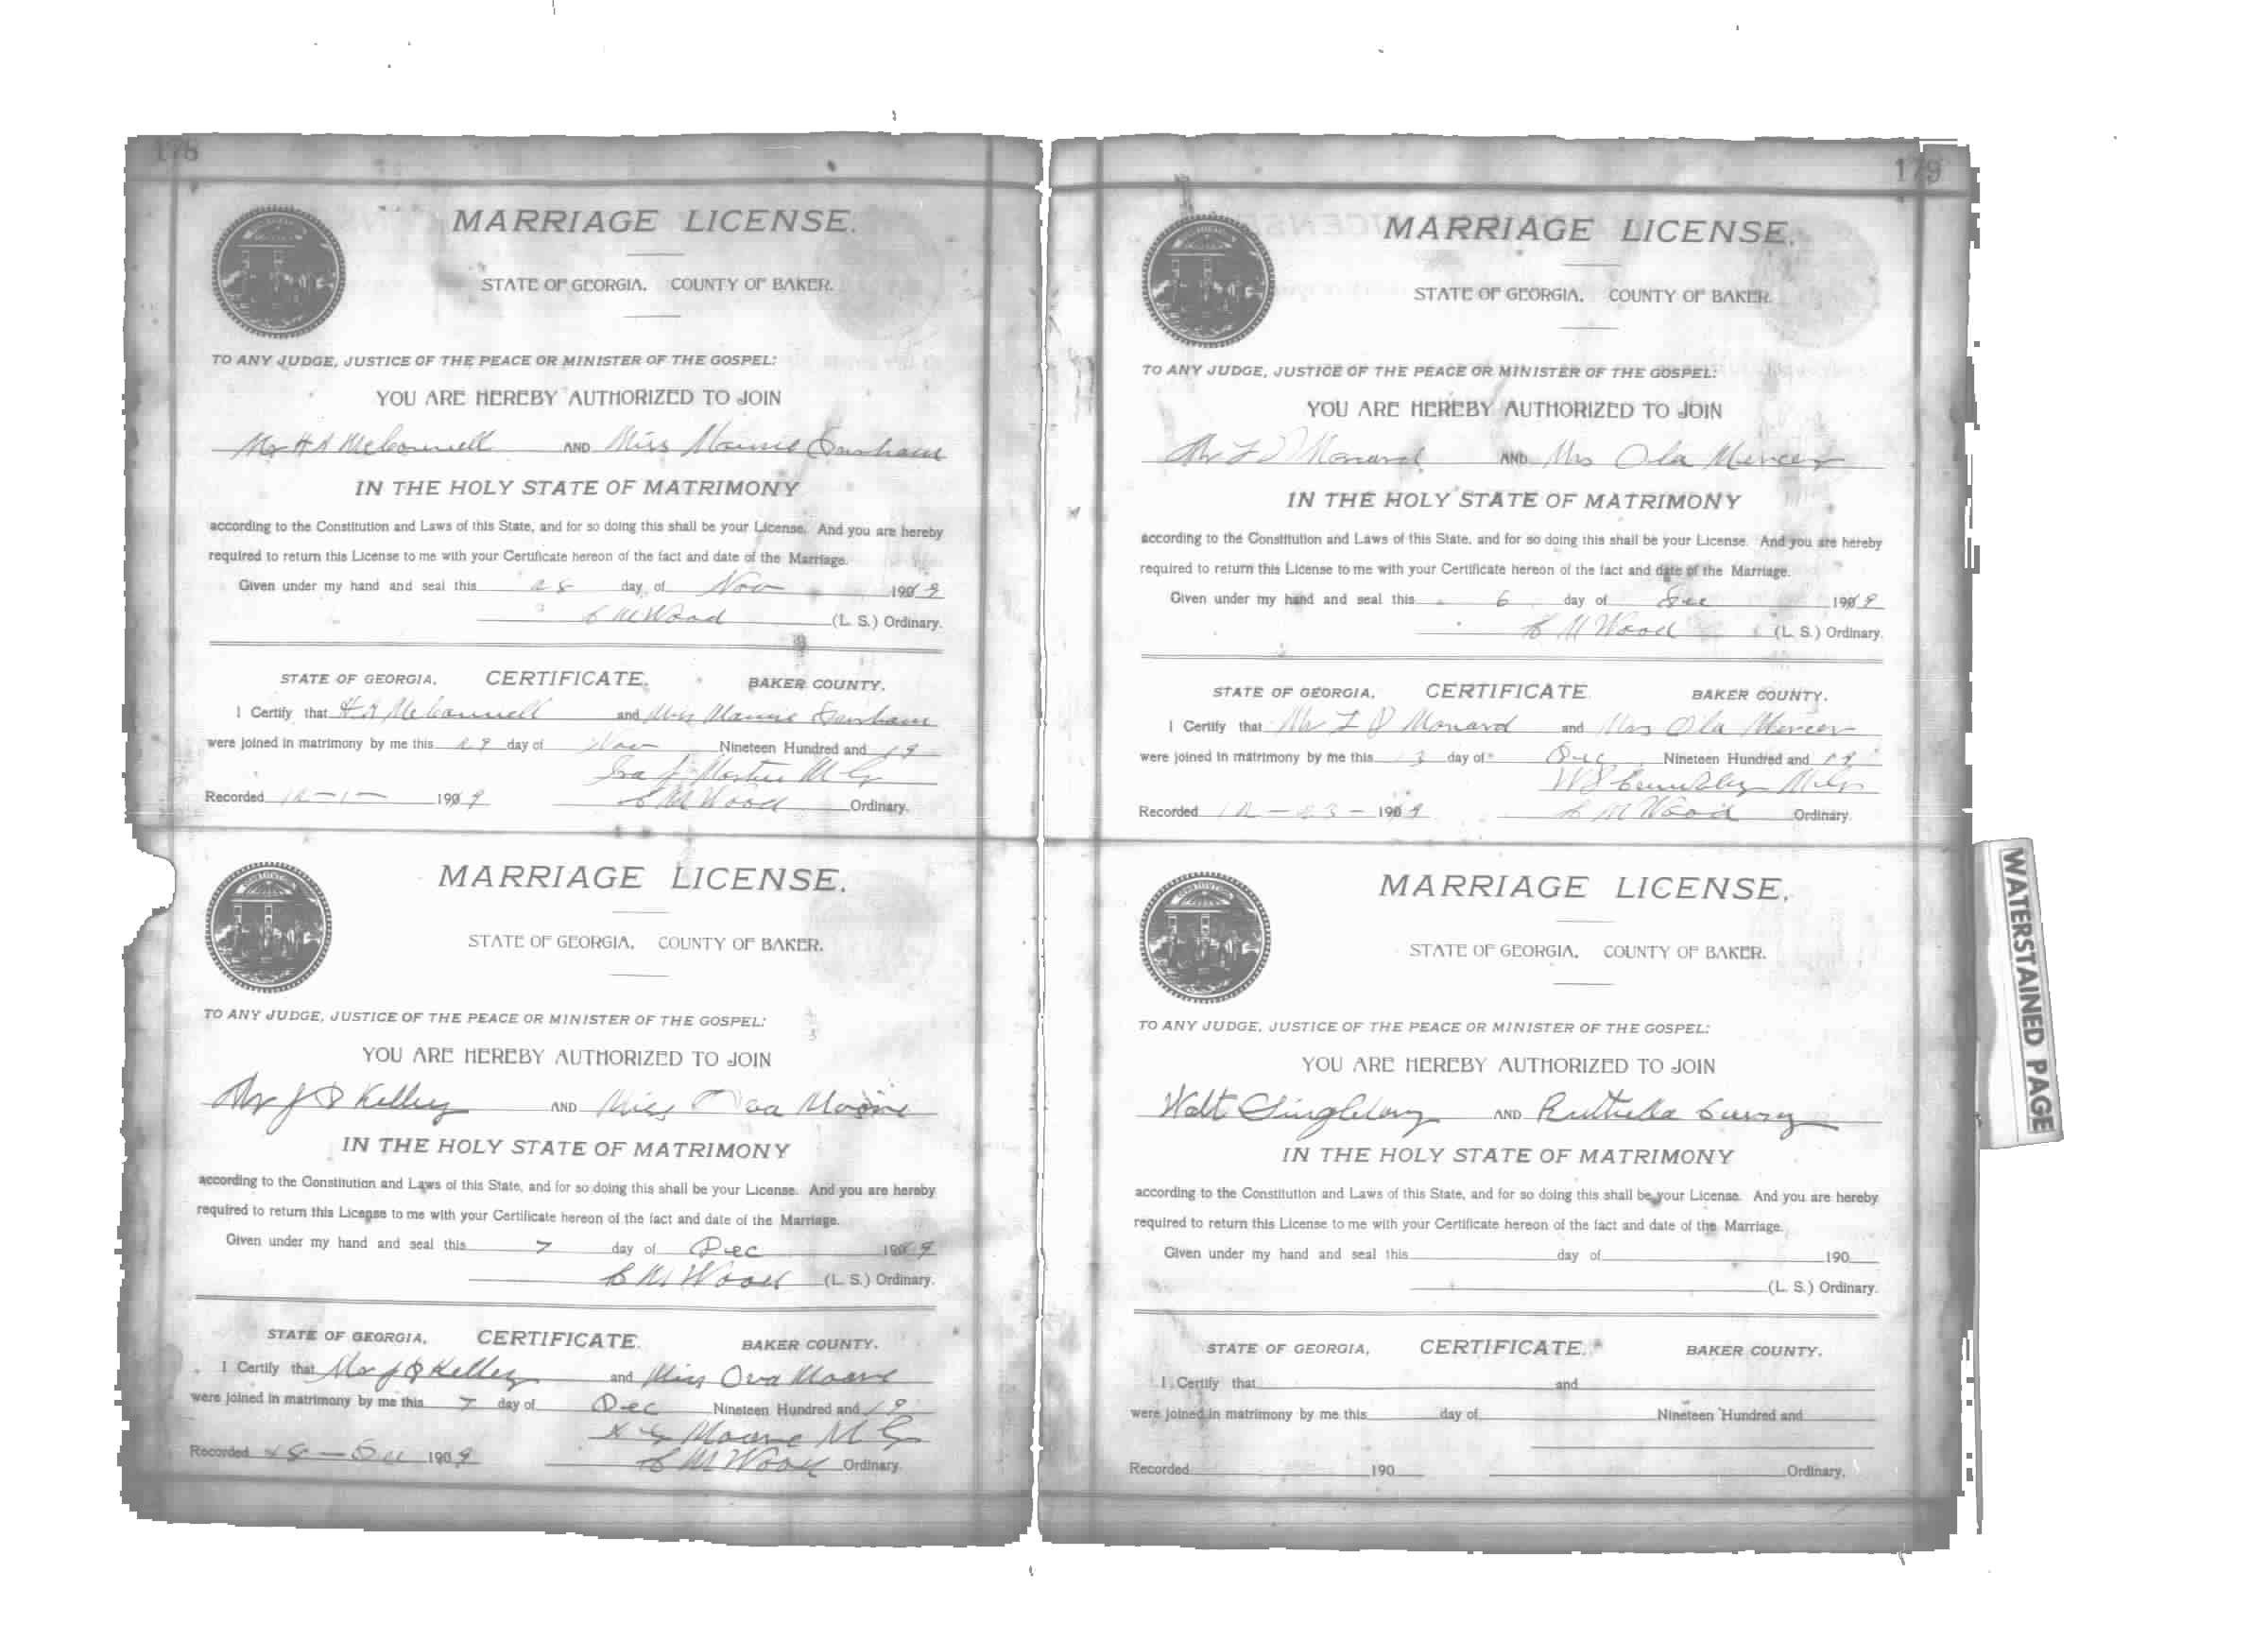 178
MARRIAGE LICENSE.
STATE OF GEORGIA. COUNTY OF BAKER.
TO ANY JUDGE, JUSTICE OF THE PEACE OR MINISTER OF THE GOSPEL:
YOU ARE HEREBY AUTHORIZED TO JOIN
Mr H A McConnell AND Miss Mamie
IN THE HOLY STATE OF MATRIMONY
according to the Constitution and Laws of this State, and for so doing this shall be your License. And you are hereby
required to return this License to me with your Certificate hereon of the fact and date of the Marriage.
Given under my hand and seal this 28 day of Nov 1909
C M Wood (L. S.) Ordinary.
STATE OF GEORGIA. CERTIFICATE. BAKER COUNTY.
I Certify that H A McConnell and Miss Mamie
were joined in matrimony by me this 29 day of Nov Nineteen Hundred and 19
Ira M G
Recorded 12-1- 1909 C M Wood Ordinary.
MARRIAGE LICENSE.
STATE OF GEORGIA. COUNTY OF BAKER.
TO ANY JUDGE, JUSTICE OF THE PEACE OR MINISTER OF THE GOSPEL:
YOU ARE HEREBY AUTHORIZED TO JOIN
Mr J D Kelley AND Miss Ova Moore
IN THE HOLY STATE OF MATRIMONY
according to the Constitution and Laws of this State, and for so doing this shall be your License. And you are hereby
required to return this License to me with your Certificate hereon of the fact and date of the Marriage.
Given under my hand and seal this 7 day of Dec 1909
C M Wood (L. S.) Ordinary.
STATE OF GEORGIA. CERTIFICATE. BAKER COUNTY.
I Certify that Mr J D Kelley and Miss Ova Moore
were joined in matrimony by me this 7 day of Dec Nineteen Hundred and 19
Moore M G
Recorded Dec 1909 C M Wood Ordinary.
179
MARRIAGE LICENSE.
STATE OF GEORGIA. COUNTY OF BAKER.
TO ANY JUDGE, JUSTICE OF THE PEACE OR MINISTER OF THE GOSPEL:
YOU ARE HEREBY AUTHORIZED TO JOIN
Mr Monard AND Mrs Ola Mercer
IN THE HOLY STATE OF MATRIMONY
according to the Constitution and Laws of this State, and for so doing this shall be your License. And you are hereby
required to return this License to me with your Certificate hereon of the fact and date of the Marriage.
Given under my hand and seal this 6 day of Dec 1909
C M Wood (L. S.) Ordinary.
STATE OF GEORGIA. CERTIFICATE. BAKER COUNTY.
I Certify that Mr Monard and Mrs Ola Mercer
were joined in matrimony by me this day of Dec Nineteen Hundred and 19
Recorded 12-23- 1909 C M Wood Ordinary.
MARRIAGE LICENSE.
STATE OF GEORGIA. COUNTY OF BAKER.
TO ANY JUDGE, JUSTICE OF THE PEACE OR MINISTER OF THE GOSPEL:
YOU ARE HEREBY AUTHORIZED TO JOIN
Walt Singletary AND
IN THE HOLY STATE OF MATRIMONY
according to the Constitution and Laws of this State, and for so doing this shall be your License. And you are hereby
required to return this License to me with your Certificate hereon of the fact and date of the Marriage.
Given under my hand and seal this day of 190
(L. S.) Ordinary.
STATE OF GEORGIA. CERTIFICATE. BAKER COUNTY.
I Certify that and
were joined in matrimony by me this day of Nineteen Hundred and
Recorded 190 Ordinary.
WATERSTAINED PAGE